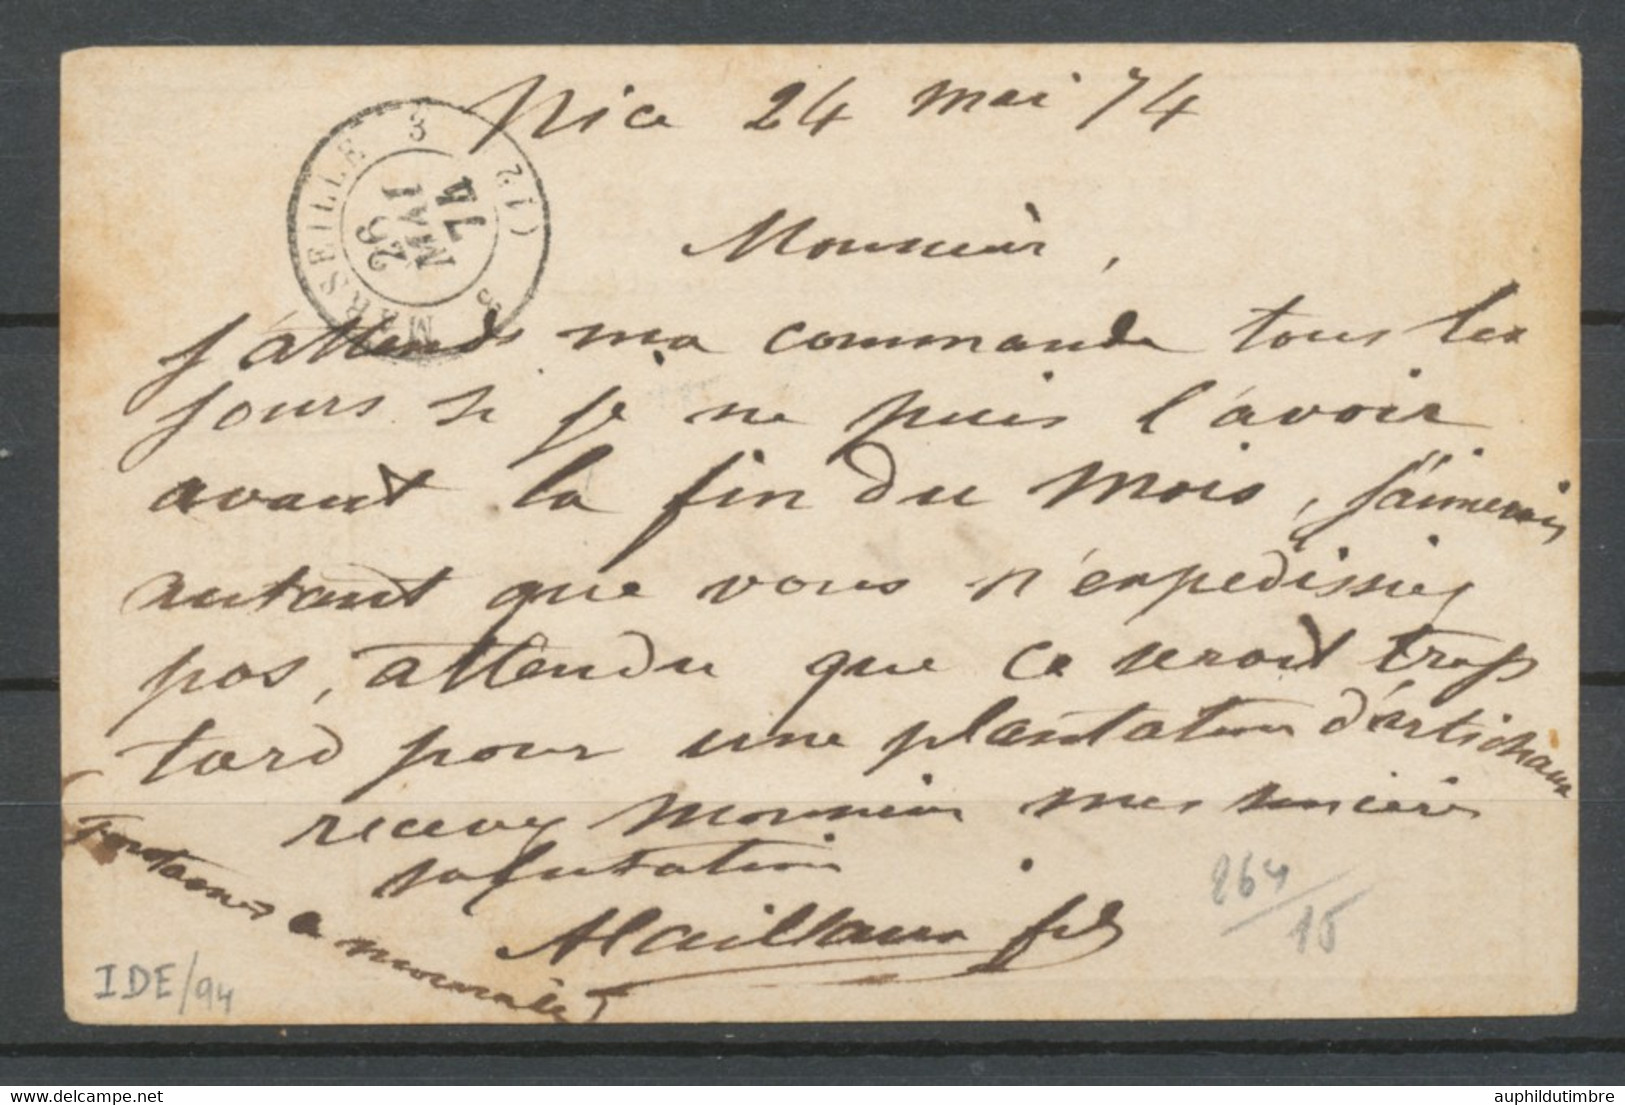 Nice 24 mai 74
MARSEILLE 3
26
MAI
74
(12)
Monsieur,
J'attends ma commande tous les
jours si je ne puis l'avoir
avant la fin du mois, J'aimerais
autant que vous n'expedissiez
pas, attendu que ce serait trop
tard pour une plantation d'artichaux
recevez Monsieur mes sincères
salutation
Maillaux fils
à
IDE/94
264/15
delcampe.net
auphildutimbre